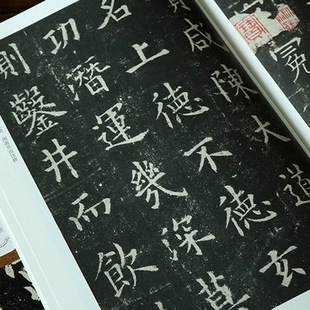 咸陳大道
名上德不德玄
功潛運幾深莫
則鑿井而飲